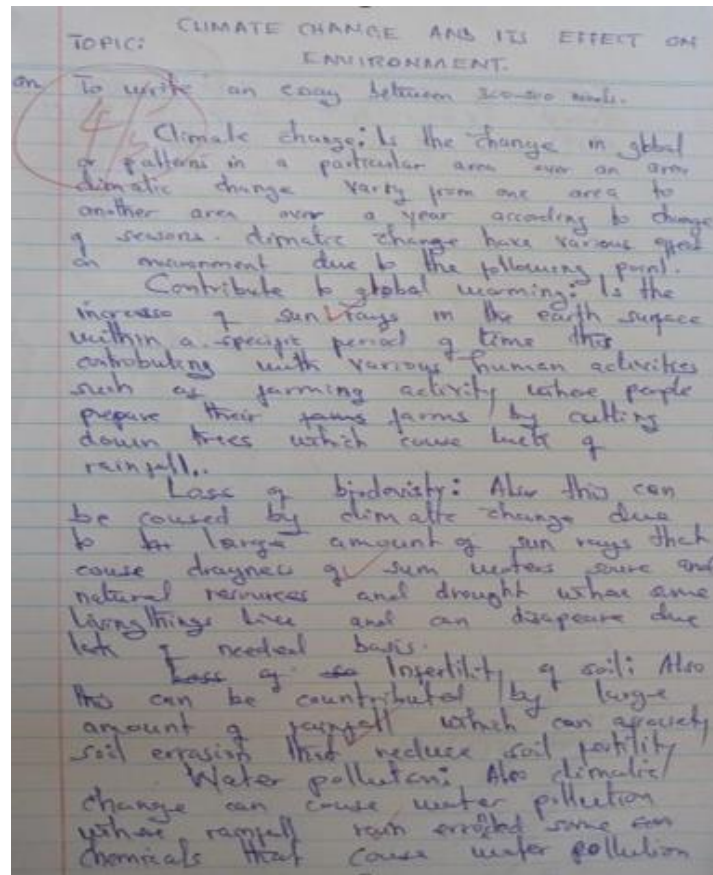 TOPIC: CLIMATE CHANGE AND ITS EFFECT ON
ENVIRONMENT.
on To write an essay between 300-500 words.
4/
Climate change: Is the change in global
or patterns in a particular area over an area
climatic change varry from one area to
another area over a year according to change
of seasons. climatic change have various effect
on environment due to the following point.
Contribute to global warming: Is the
increase of sun rays in the earth surface
within a specific period of time this
controbuting with various human activities
such as farming activity where people
prepare their farms by cutting
down trees which couse lack of
rainfall..
Loss of biodevisty: Also this can
be coused by climatic change due
to large amount of sun rays that
couse draynes of sum waters soure and
natural resources and drought whae some
living things live and can disapeare due
lack of needeal basis.
Loss of so Infertility of soil: Also
this can be countributed by large
amount of rainfall which can
soil errasion that reduce soil fertility
Water pollution: Also climatic
change can couse water pollution
where rainfall rain erroded some
chemicals that couse water pollution